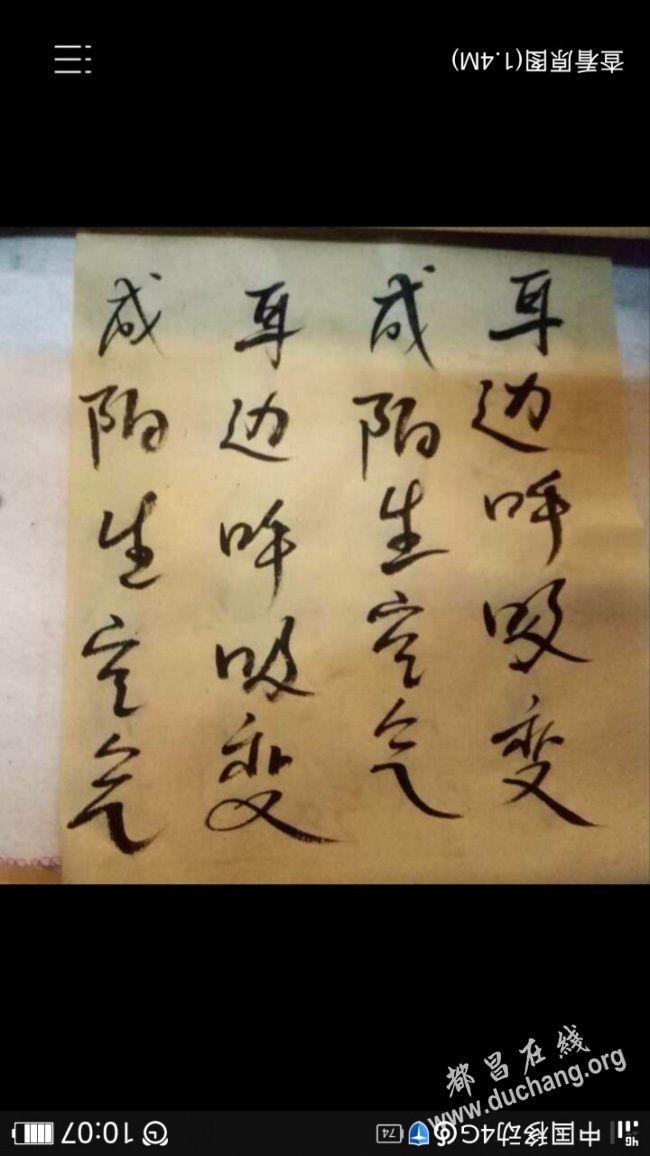 查看原图(1.4M)
耳边呼吸变
成陌生空气
耳边呼吸变
成陌生空气
都昌在線
www.duchang.org
中国移动4G 74 10:07